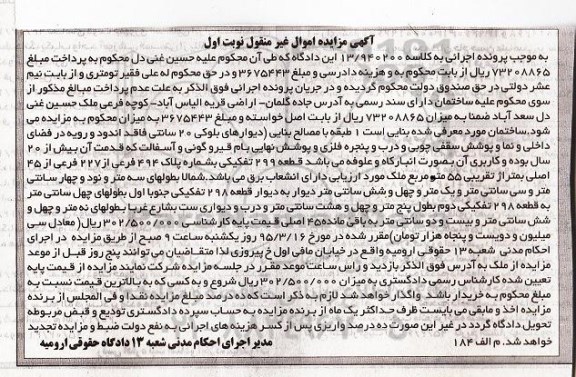 آگهی مزایده اموال غیر منقول نوبت اول
به موجب پرونده اجرائی به کلاسه ۱۳/۹۴۰۲۰۰ این دادگاه که طی آن محکوم علیه حسین غنی دل محکوم به پرداخت مبلغ
۷۳۲۰۸۸۶۵ ریال از بابت محکوم به و هزینه دادرسی و مبلغ ۳۶۷۵۴۴۳ و در حق محکوم له علی فقیر تومتری و از بابت نیم
عشر دولتی در حق صندوق دولت محکوم گردیده و در جریان پرونده اجرائی فوق الذکر به علت عدم پرداخت مبالغ مذکور از
سوی محکوم علیه ساختمان دارای سند رسمی به آدرس جاده گلمان- اراضی قریه الیاس آباد-کوچه فرعی ملک حسین غنی
دل سعد آباد ضمنا به میزان ۷۳۲۰۸۸۶۵ ریال از بابت اصل خواسته و مبلغ ۳۶۷۵۴۴۳ به میزان محکوم به مزایده می
شود.ساختمان مورد معرفی شده بنایی است ۱ طبقه با مصالح بنایی (دیوارهای بلوکی ۲۰ سانتی فاقد اندود و رویه در فضای
داخلی و نما و پوشش سقفی چوبی و درب و پنجره فلزی و پوشش نهایی بام قیر و گونی و آسفالت که قدمت آن بیش از ۲۰
سال بوده و کاربری آن بصورت انبار کاه و علوفه می باشد قطعه ۲۹۹ تفکیکی بشماره پلاک ۴۹۴ فرعی از ۲۲۷ فرعی از ۴۵
اصلی بمتراژ تقریبی ۵۵ متر مربع ملک مورد ارزیابی دارای انشعاب برق می باشد.شمالا بطولهای سه متر و نود و چهار سانتی
متر و سی سانتی متر و یک متر و چهل و شش سانتی متر دیوار به دیوار قطعه ۲۹۸ تفکیکی جنوبا اول بطولهای چهل سانتی متر
به قطعه ۲۹۸ تفکیکی دوم بطول پنج متر و چهل و هشت سانتی متر و درب و دیواری ست بشارع غربا بطولهای نه متر و چهل و
شش سانتی متر و بیست و دو سانتی متر به باقی مانده ۴۵ اصلی قیمت پایه کارشناسی ۳۰۲/۵۰۰/۰۰۰ ریال( معادل سی
میلیون و دویست و پنجاه هزار تومان)مقرر شده در مورخ ۹۵/۳/۱۶ روز یکشنبه ساعت ۹ صبح از طریق مزایده در اجرای
احکام مدنی شعبه ۱۳ حقوقی ارومیه واقع در خیابان مافی اول خ پیروزی لذا متقاضیان می توانند پنج روز قبل از موعد
مزایده از ملک به آدرس فوق الذکر بازدید و راس ساعت موعد مقرر در جلسه مزایده شرکت نمایند مزایده از قیمت پایه
تعیین شده کارشناس رسمی دادگستری به میزان ۳۰۲/۵۰۰/۰۰۰ ریال شروع و به کسی که به بالاترین قیمت نسبت به
مبلغ محکوم به خریدار باشد واگذار خواهد شد لازم به ذکر است که ده درصد مبلغ مزایده نقدا و فی المجلس از برنده
مزایده اخذ و مابقی می بایست ظرف حداکثر یک ماه از برنده مزایده به حساب سپرده دادگستری تودیع و قبض مربوطه
تحویل دادگاه گردد در غیر این صورت ده درصد واریزی پس از کسر هزینه های اجرائی به نفع دولت ضبط و مزایده تجدید
خواهد شد. م الف ۱۸۴ مدیر اجرای احکام مدنی شعبه ۱۳ دادگاه حقوقی ارومیه